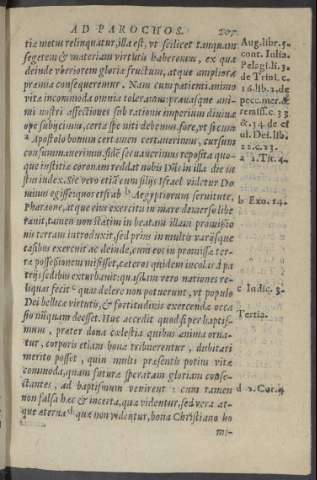 AD PAROCHOS. 207
tiæ metus relinquatur, illa est, vt scilicet tanquam
segetem & materiam virtutis haberemus, ex qua
deinde vberiorem gloriæ fructum, atque ampliora
præmia consequeremur. Nam cum patienti animo
vitæ incommoda omnia toleramus: prauasque ani-
mi nostri affectiones sub rationis imperium diuina
ope subijcimus, certa spe niti debemus fore, vt si cum
Apostolo bonum certamen certauerimus, cursum
consummauerimus, fidē seruauerimus reposita quo-
que iustitiæ coronam reddat nobis Dñs in illa die iu-
stus iudex. Sic
Dominus egisse: quos etsi ab b Aegyptiorum seruitute,
Pharaone, atque eius exercitu in mare demerso libe
rauit, tamen non statim in beatam illam promissio
nis terram introduxit, sed prius in multis varijsque
casibus exercuit ac deinde, cum eos in promissæ ter-
ræ possessionem misisset, cæteros quidem incolas à pa
trijs sedibus exturbauit: quasdam vero nationes re-
liquas fecit c quas delere non potuerunt, vt populo
Dei bellicæ virtutis, & fortitudinis exercendæ occa
sio nunquam deesset. Huc accedit quod si per baptis-
mum, præter dona cælestia quibus anima orna
tur, corporis etiam bona tribuerentur, dubitari
merito posset, quin multi præsentis potius vitæ
commoda, quam futuræ speratam gloriam conse-
ctantes, ad baptismum venirent: cum tamen
non falsa hæc & incerta, quæ videntur, sed vera at-
que æterna d quæ non videntur, bona Christiano ho
mi-
Aug. lib. 5.
cont. Iulia.
Pelagi. li. 3.
de Trini. c.
16. lib. 2. de
pecc. mer. &
remiss. c. 33.
& 34. de et
ui. Dei. lib.
22. c. 23.
a 2. Ti. 4.
b Exo. 14.
c Iudic. 3.
Tertia.
d 2. Cor. 4